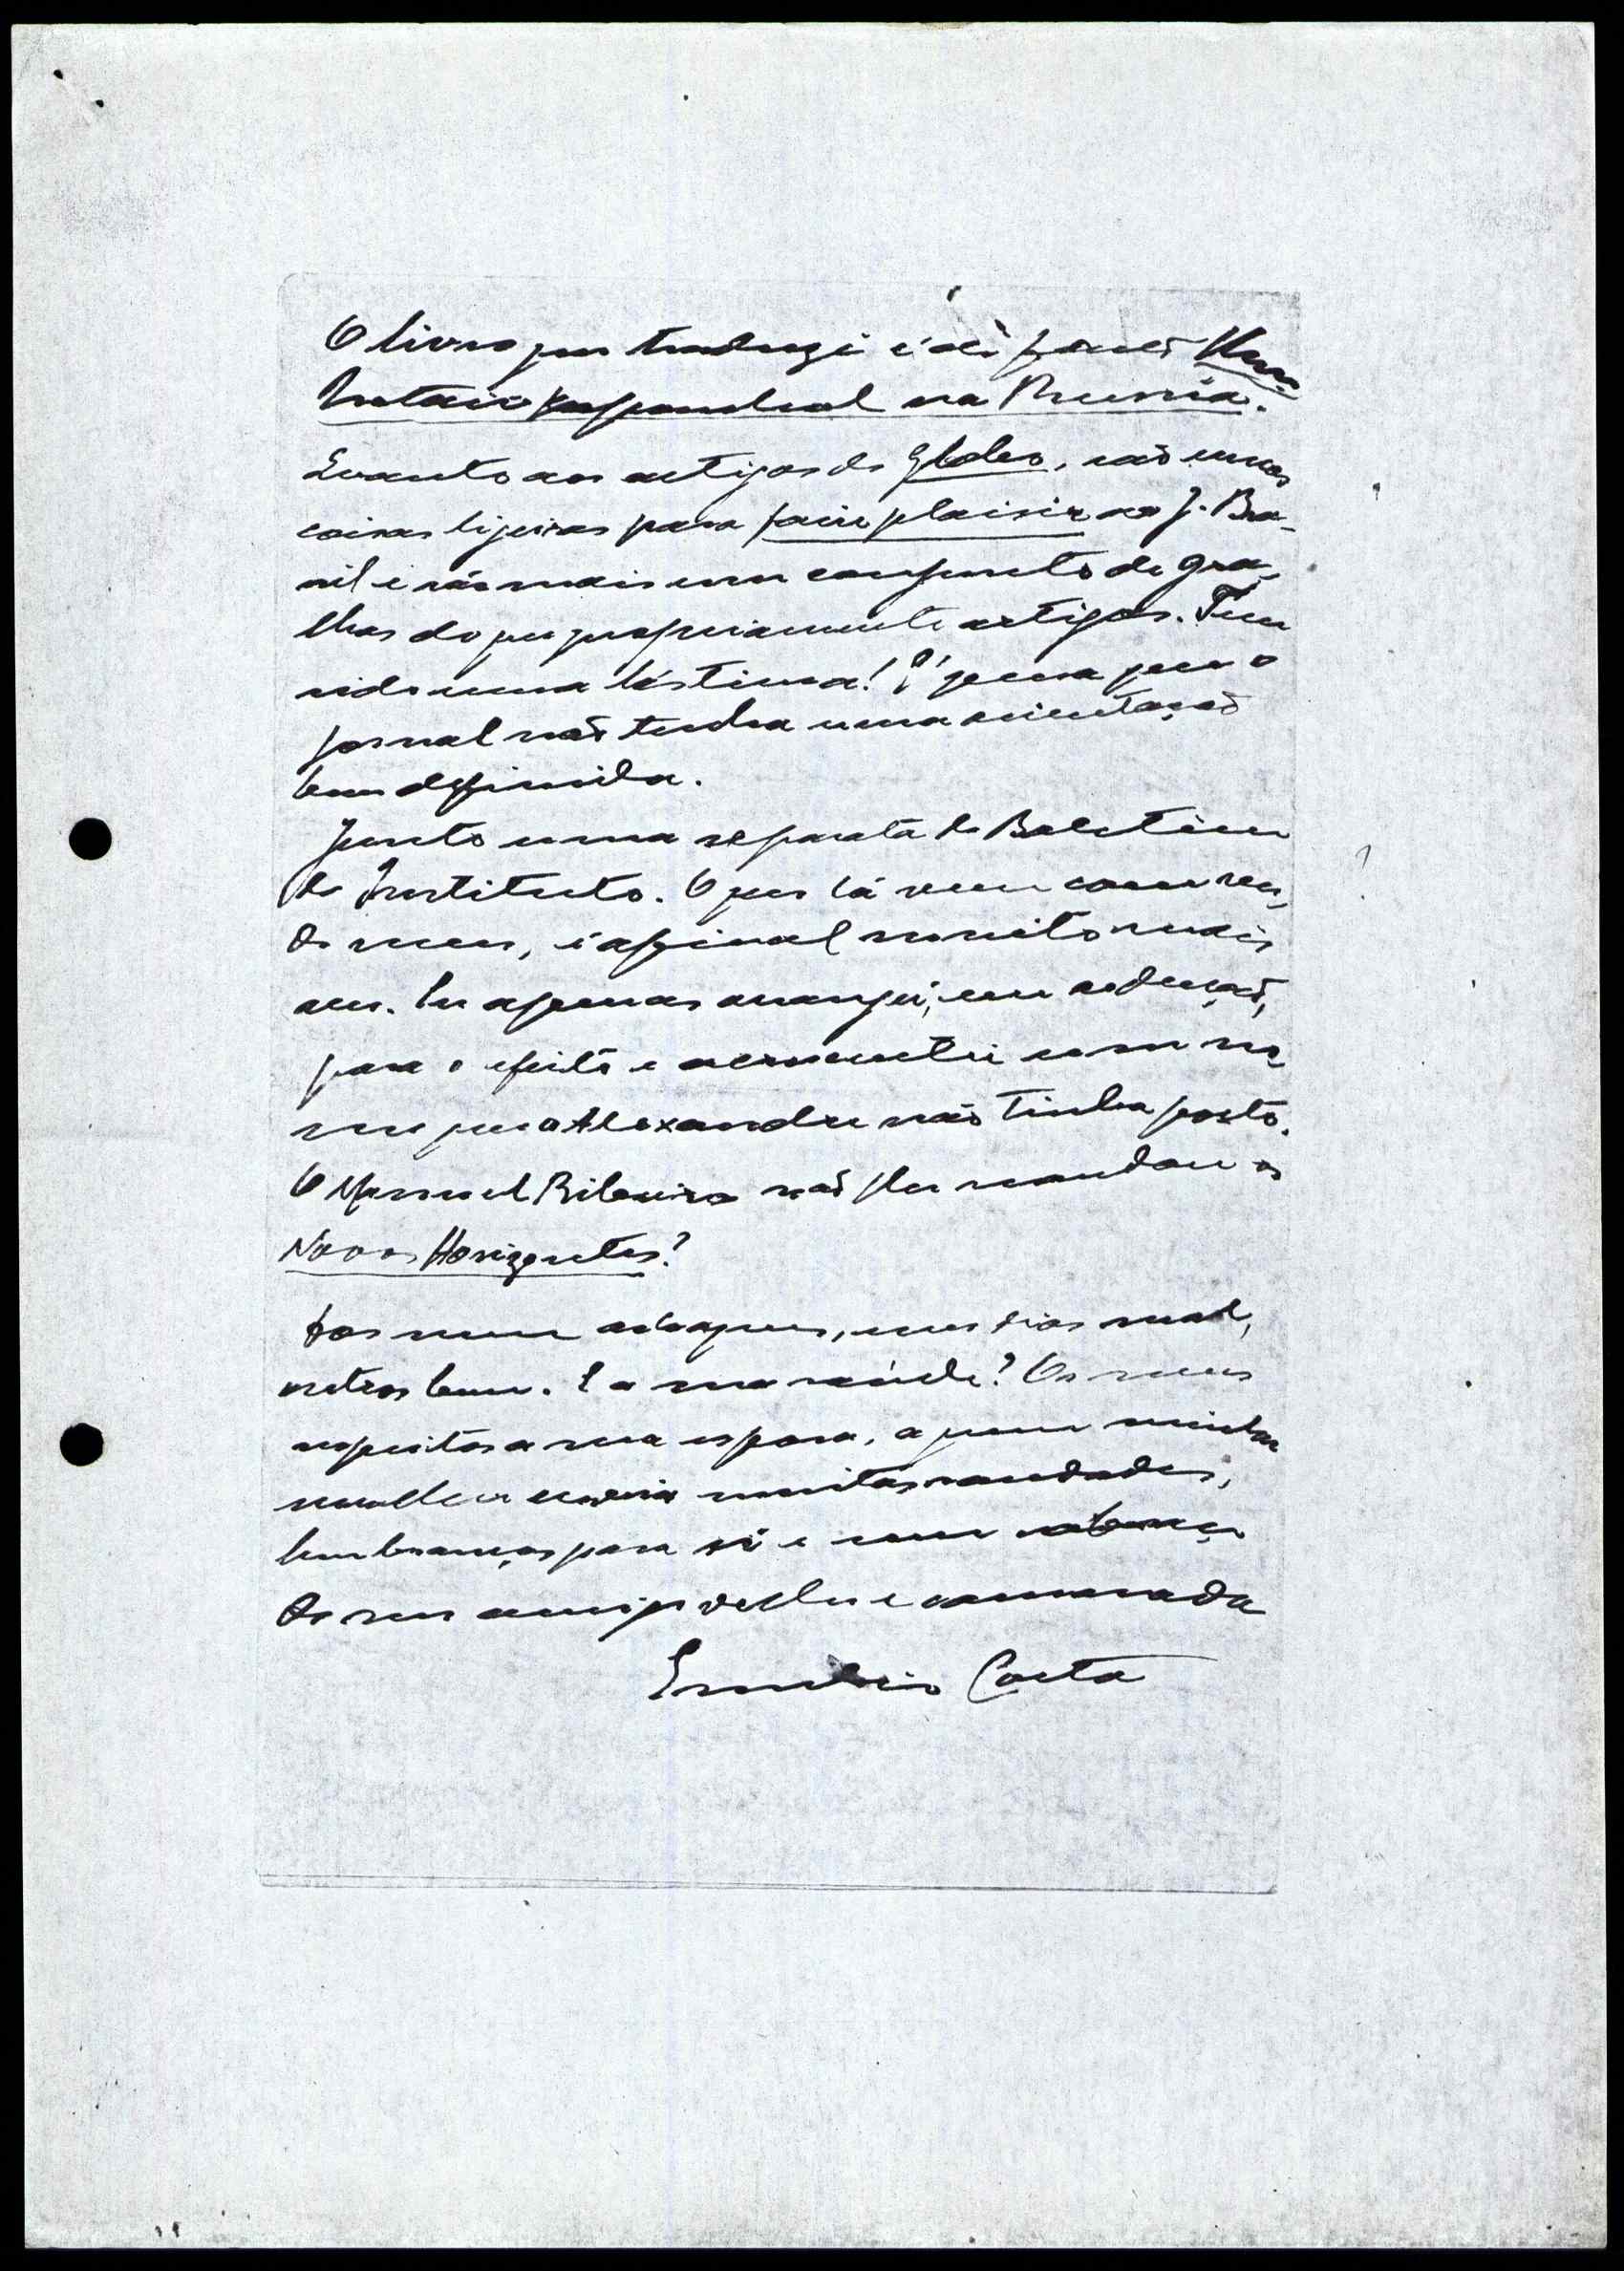 O livro que traduzi é de Istrati Um
notario espanhol na Russia.
Quanto aos artigos do Globo, são umas
coisas ligeiras para faire plaisir ao J. Bra-
sil e são mais um conjunto de gra-
lhas do que propriamente artigos. Tem
sido uma lástima! É pena que o
jornal não tenha uma orientação
bem definida.
Junto uma separata do Boletim
do Instituto. O que lá vem como sen-
do meu, é afinal muito mais
seu. Eu apenas arranjei, em redução,
para o efeito e acrescentei um no-
me que o Alexandre não tinha posto.
O Manuel Ribeiro não lhe mandou os
Novos Horizontes?
, uns dias mal,
outros bem. E a sua saúde? Os meus
respeitos a sua esposa, a quem minha
mulher envia muitas saudades,
lembranças para si e um abraço
do seu amigo velho e camarada
Emilio Costa